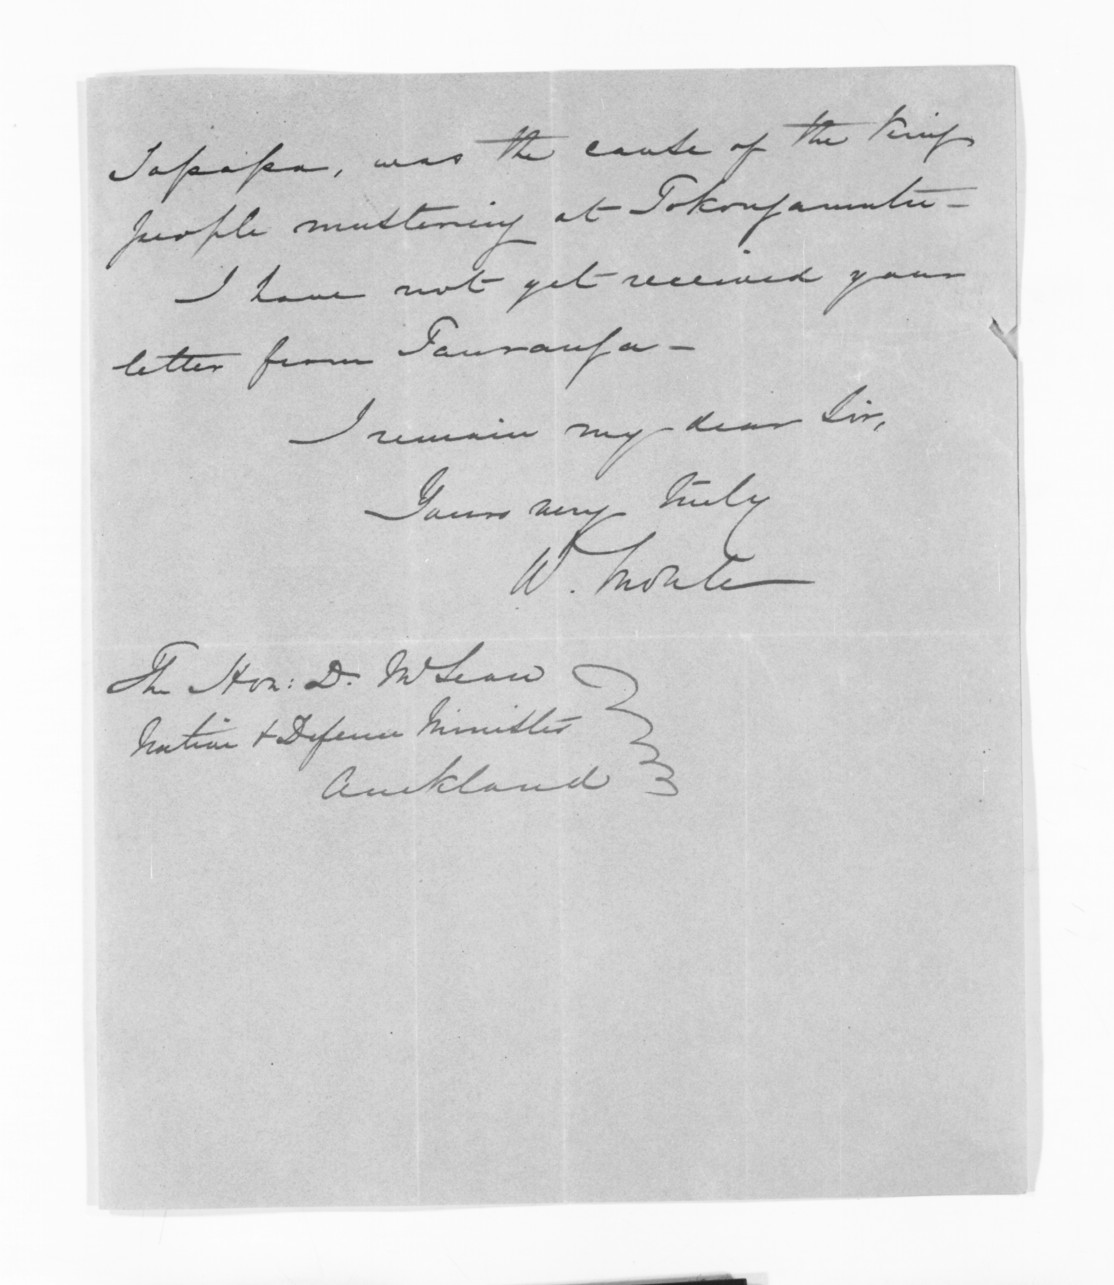 Tapapa, was the cause of the King
people mustering at Tokangamutu -
I have not yet received your
letter from Tauranga -
I remain my dear Sir,
Yours very truly
W. Moule
The Hon: D. McLean
Native & Defence Minister
Auckland